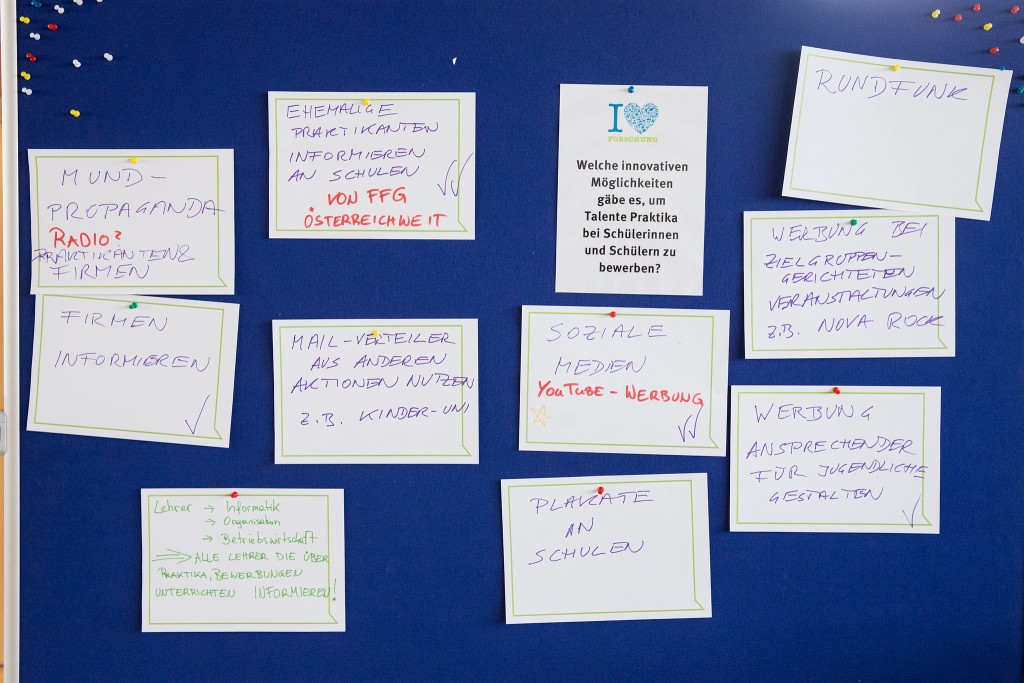 MUND-
PROPAGANDA
RADIO?
PRAKTIKANTEN&
FIRMEN
FIRMEN
INFORMIEREN
EHEMALIGE
PRAKTIKANTEN
INFORMIEREN
AN SCHULEN
VON FFG
ÖSTERREICHWEIT
MAIL-VERTEILER
AUS ANDEREN
AKTIONEN NUTZEN
Z.B. KINDER-UNI
Lehrer → Informatik
→ Organisation
→ Betriebswirtschaft
⇒ ALLE LEHRER DIE ÜBER
PRAKTIKA, BEWERBUNGEN
UNTERRICHTEN INFORMIEREN!
I ♥
FORSCHUNG
Welche innovativen
Möglichkeiten
gäbe es, um
Talente Praktika
bei Schülerinnen
und Schülern zu
bewerben?
SOZIALE
MEDIEN
YOUTUBE-WERBUNG
PLAKATE
AN
SCHULEN
RUNDFUNK
WERBUNG BEI
ZIELGRUPPEN-
GERICHTETEN
VERANSTALTUNGEN
Z.B. NOVA ROCK
WERBUNG
ANSPRECHENDER
FÜR JUGENDLICHE
GESTALTEN